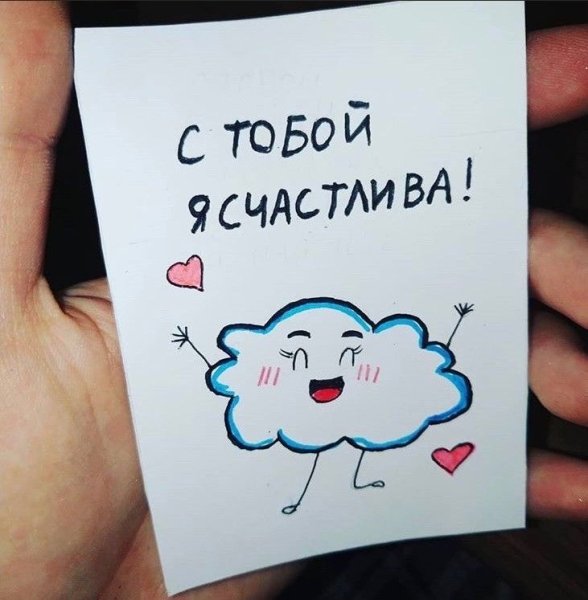 С ТОБОЙ
Я СЧАСТЛИВА!